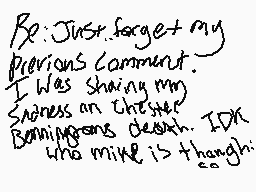 Re: Just forget my
previous comment.
I was sharing my
Sadness on Chester
Benningtons death. IDK
who mike is though: